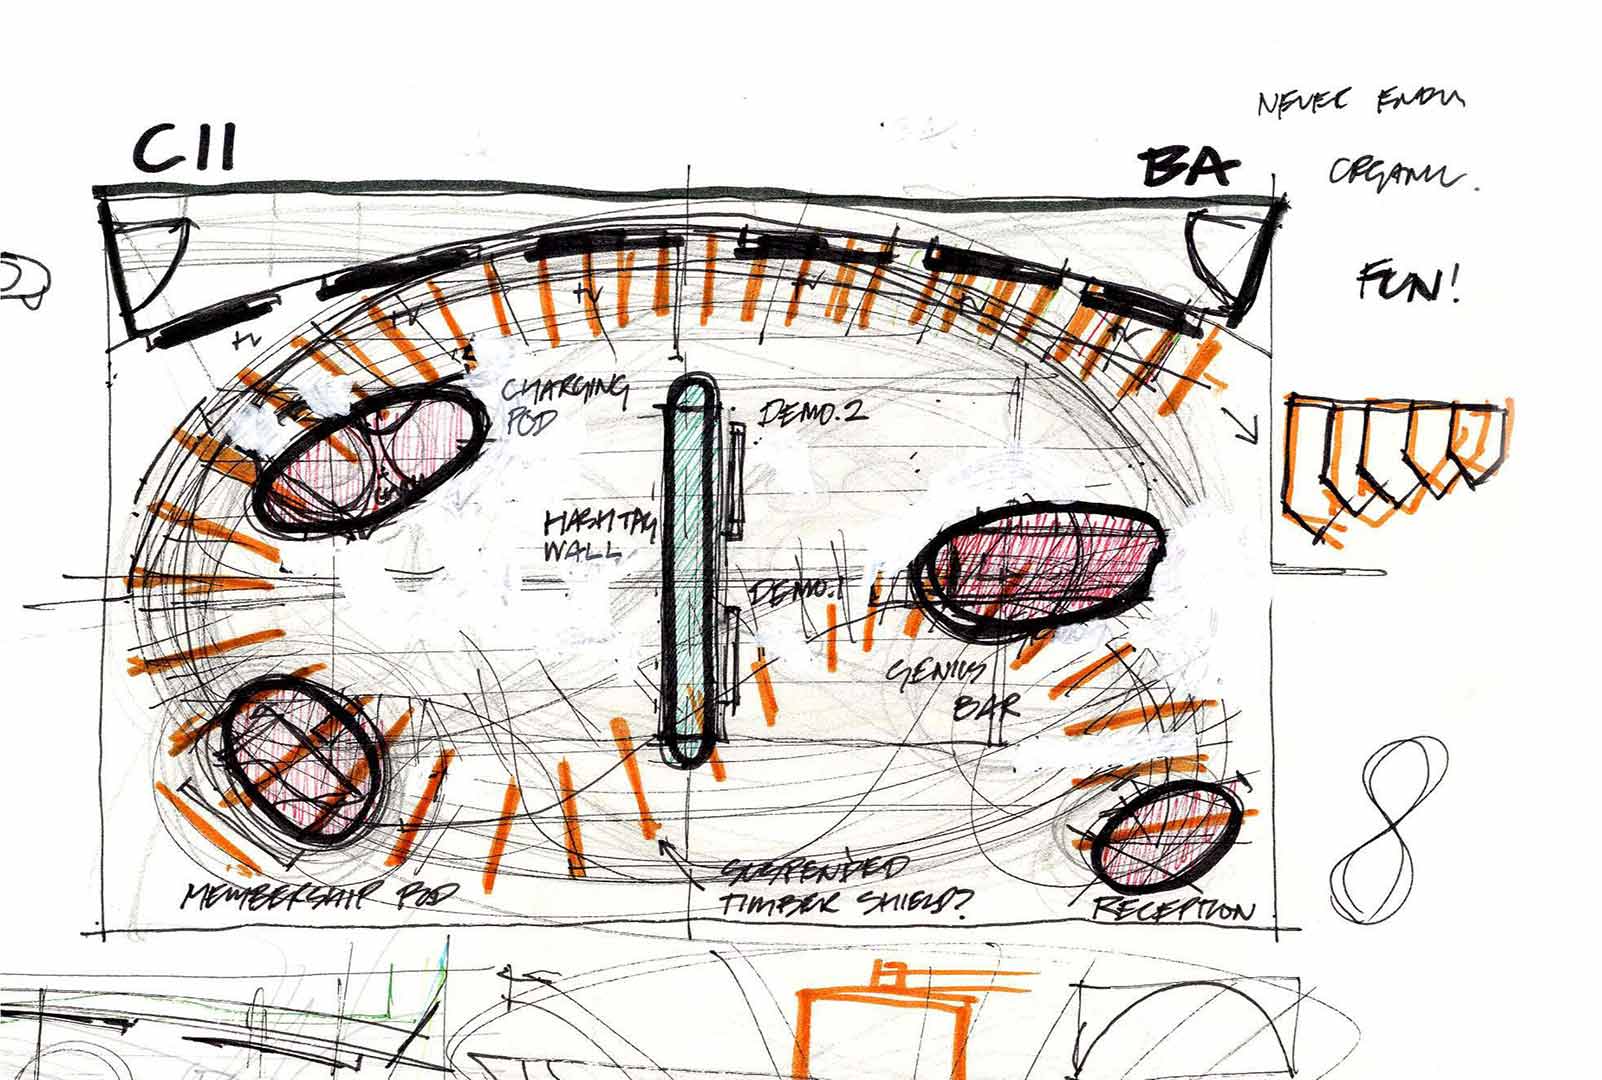 CII
BA
NEVER
ORGANIC.
FUN!
TV
TV
TV
TV
TV
TV
CHARGING
POD
DEMO.2
HASHTAG
WALL
DEMO.1
GENIUS
BAR
MEMBERSHIP POD
SUSPENDED
TIMBER SHIELD?
RECEPTION